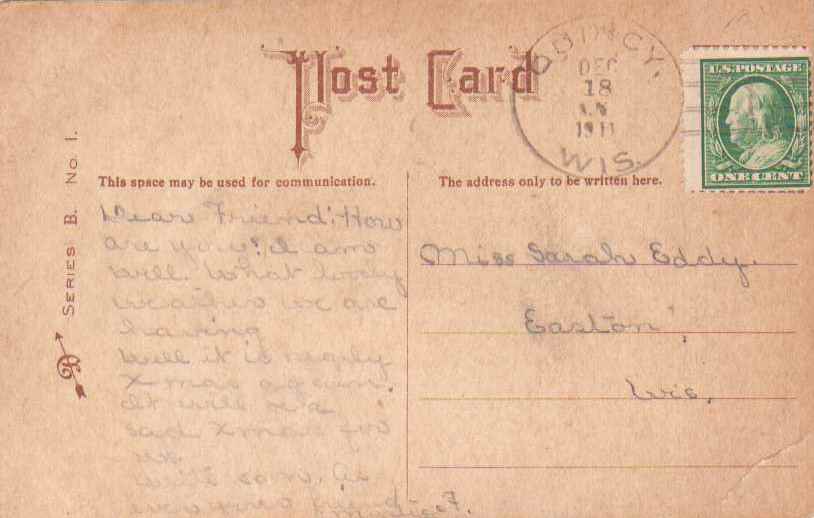 Post Card
QUINCY,
DEC
18
1911
WIS.
U.S. POSTAGE
ONE CENT
SERIES B. No. 1.
This space may be used for communication.
The address only to be written here.
Dear Friend: How
are you? I am
well. What lovely
weather we are
having
Well it is nearly
X-mas again.
It will be a
sad Xmas for
us.
Write soon. As
ever your friend
Miss Sarah Eddy.
Easton,
Wis.